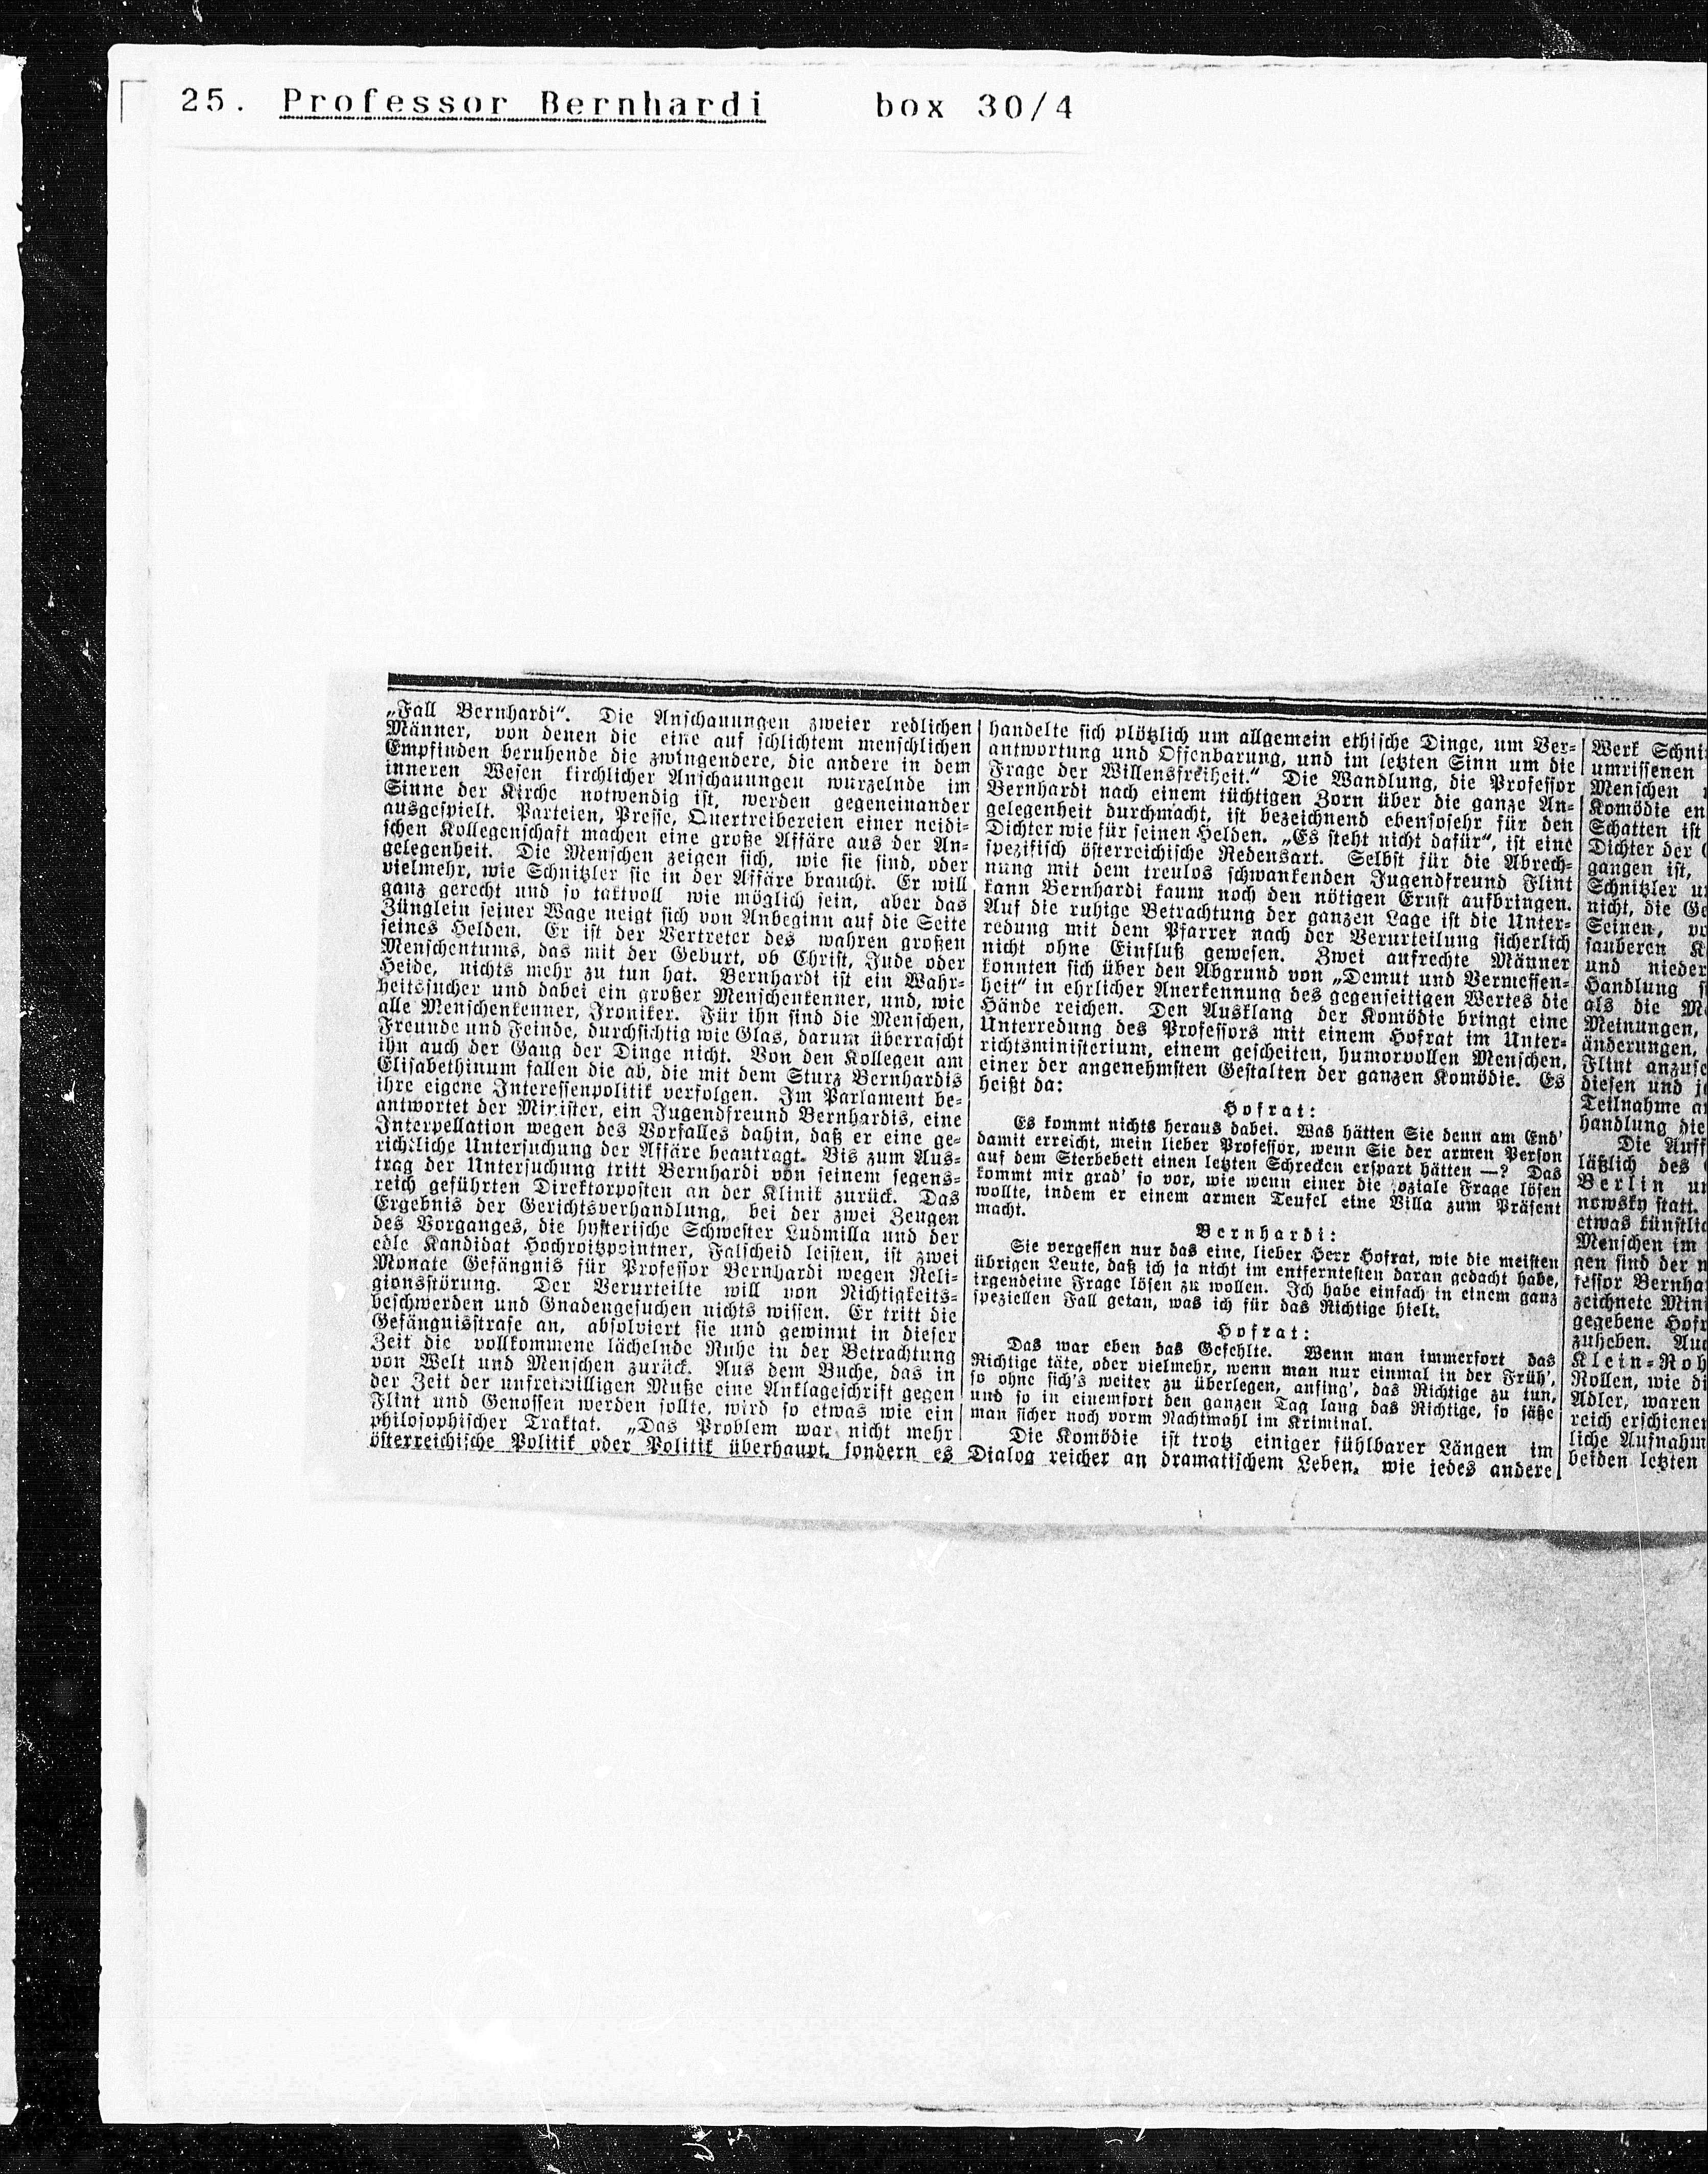 25. Professor Bernhardi box 30/4
„Fall Bernhardi“. Die Anschauungen zweier redlichen
Männer, von denen die eine auf schlichtem menschlichen
Empfinden beruhende die zwingendere, die andere in dem
inneren Wesen kirchlicher Anschauungen wurzelnde im
Sinne der Kirche notwendig ist, werden gegeneinander
ausgespielt. Parteien, Presse, Quertreibereien einer neidi-
schen Kollegenschaft machen eine große Affäre aus der An-
gelegenheit. Die Menschen zeigen sich, wie sie sind, oder
vielmehr, wie Schnitzler sie in der Affäre braucht. Er will
ganz gerecht und so taktvoll wie möglich sein, aber das
Zünglein seiner Wage neigt sich von Anbeginn auf die Seite
seines Helden. Er ist der Vertreter des wahren großen
Menschentums, das mit der Geburt, ob Christ, Jude oder
Heide, nichts mehr zu tun hat. Bernhardi ist ein Wahr-
heitssucher und dabei ein großer Menschenkenner, und, wie
alle Menschenkenner, Ironiker. Für ihn sind die Menschen,
Freunde und Feinde, durchsichtig wie Glas, darum überrascht
ihn auch der Gang der Dinge nicht. Von den Kollegen am
Elisabethinum fallen die ab, die mit dem Sturz Bernhardis
ihre eigene Interessenpolitik verfolgen. Im Parlament be-
antwortet der Minister, ein Jugendfreund Bernhardis, eine
Interpellation wegen des Vorfalles dahin, daß er eine ge-
richtliche Untersuchung der Affäre beantragt. Bis zum Aus-
trag der Untersuchung tritt Bernhardi von seinem segens-
reich geführten Direktorposten an der Klinik zurück. Das
Ergebnis der Gerichtsverhandlung, bei der zwei Zeugen
des Vorganges, die hysterische Schwester Ludmilla und der
edle Kandidat Hochroitzpointner, Falscheid leisten, ist zwei
Monate Gefängnis für Professor Bernhardi wegen Reli-
gionsstörung. Der Verurteilte will von Nichtigkeits-
beschwerden und Gnadengesuchen nichts wissen. Er tritt die
Gefängnisstrafe an, absolviert sie und gewinnt in dieser
Zeit die vollkommene lächelnde Ruhe in der Betrachtung
von Welt und Menschen zurück. Aus dem Buche, das in
der Zeit der unfreiwilligen Muße eine Anklageschrift gegen
Flint und Genossen werden sollte, wird so etwas wie ein
philosophischer Traktat. „Das Problem war nicht mehr
österreichische Politik oder Politik überhaupt, sondern es
handelte sich plötzlich um allgemein ethische Dinge, um Ver-
antwortung und Offenbarung, und im letzten Sinn um die
Frage der Willensfreiheit.“ Die Wandlung, die Professor
Bernhardi nach einem tüchtigen Zorn über die ganze An-
gelegenheit durchmacht, ist bezeichnend ebensosehr für den
Dichter wie für seinen Helden. „Es steht nicht dafür“, ist eine
spezifisch österreichische Redensart. Selbst für die Abrech-
nung mit dem treulos schwankenden Jugendfreund Flint
kann Bernhardi kaum noch den nötigen Ernst aufbringen.
Auf die ruhige Betrachtung der ganzen Lage ist die Unter-
redung mit dem Pfarrer nach der Verurteilung sicherlich
nicht ohne Einfluß gewesen. Zwei aufrechte Männer
konnten sich über den Abgrund von „Demut und Vermessen-
heit“ in ehrlicher Anerkennung des gegenseitigen Wertes die
Hände reichen. Den Ausklang der Komödie bringt eine
Unterredung des Professors mit einem Hofrat im Unter-
richtsministerium, einem gescheiten, humorvollen Menschen,
einer der angenehmsten Gestalten der ganzen Komödie. Es
heißt da:
Hofrat:
Es kommt nichts heraus dabei. Was hätten Sie denn am End'
damit erreicht, mein lieber Professor, wenn Sie der armen Person
auf dem Sterbebett einen letzten Schrecken erspart hätten —? Das
kommt mir grad' so vor, wie wenn einer die soziale Frage lösen
wollte, indem er einem armen Teufel eine Villa zum Präsent
macht.
Bernhardi:
Sie vergessen nur das eine, lieber Herr Hofrat, wie die meisten
übrigen Leute, daß ich ja nicht im entferntesten daran gedacht habe,
irgendeine Frage lösen zu wollen. Ich habe einfach in einem ganz
speziellen Fall getan, was ich für das Richtige hielt.
Hofrat:
Das war eben das Gefehlte. Wenn man immerfort das
Richtige täte, oder vielmehr, wenn man nur einmal in der Früh',
so ohne sich's weiter zu überlegen, anfing', das Richtige zu tun,
und so in einemfort den ganzen Tag lang das Richtige, so säße
man sicher noch vorm Nachtmahl im Kriminal.
Die Komödie ist trotz einiger fühlbarer Längen im
Dialog reicher an dramatischem Leben, wie jedes andere
Werk Schni
umrissenen
Menschen
Komödie en
Schatten ist
Dichter der
gangen ist,
Schnitzler u
nicht, die Ge
Seinen, vo
sauberen K
und nieder
Handlung s
als die Me
Meinungen,
änderungen,
Flint anzus
diesen und j
Teilnahme a
handlung die
Die Auff
läßlich des
Berlin u
nowsky statt.
etwas künstlic
Menschen im
gen sind der n
fessor Bernha
zeichnete Mini
gegebene Hofr
zuheben. Auc
Klein-Roh
Rollen, wie di
Adler, waren
reich erschienen
liche Aufnahm
beiden letzten